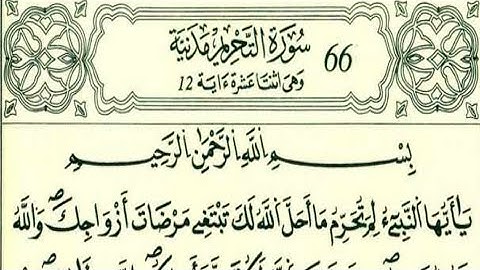 66 سُورَةُ التَّحْرِيمِ مَدَنِيَّة
وَهِيَ اثْنَتَا عَشْرَةَ ءَايَة 12
بِسْمِ اِللَّهِ اِلرَّحْمَٰنِ اِلرَّحِيمِ
يَٰأَيُّهَا اَلنَّبِيٓءُ لِمَ تُحَرِّمُ مَا أَحَلَّ اَللَّهُ لَكَ تَبْتَغِے مَرْضَاتَ أَزْوَاجِكَ وَاللَّهُ